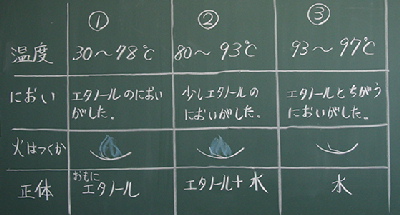 ① ② ③
温度 30～78℃ 80～93℃ 93～97℃
におい エタノールのにおい 少しエタノールの エタノールとちがう
がした。 においがした。 においがした。
火はつくか
正体 おもに エタノール エタノール+水 水